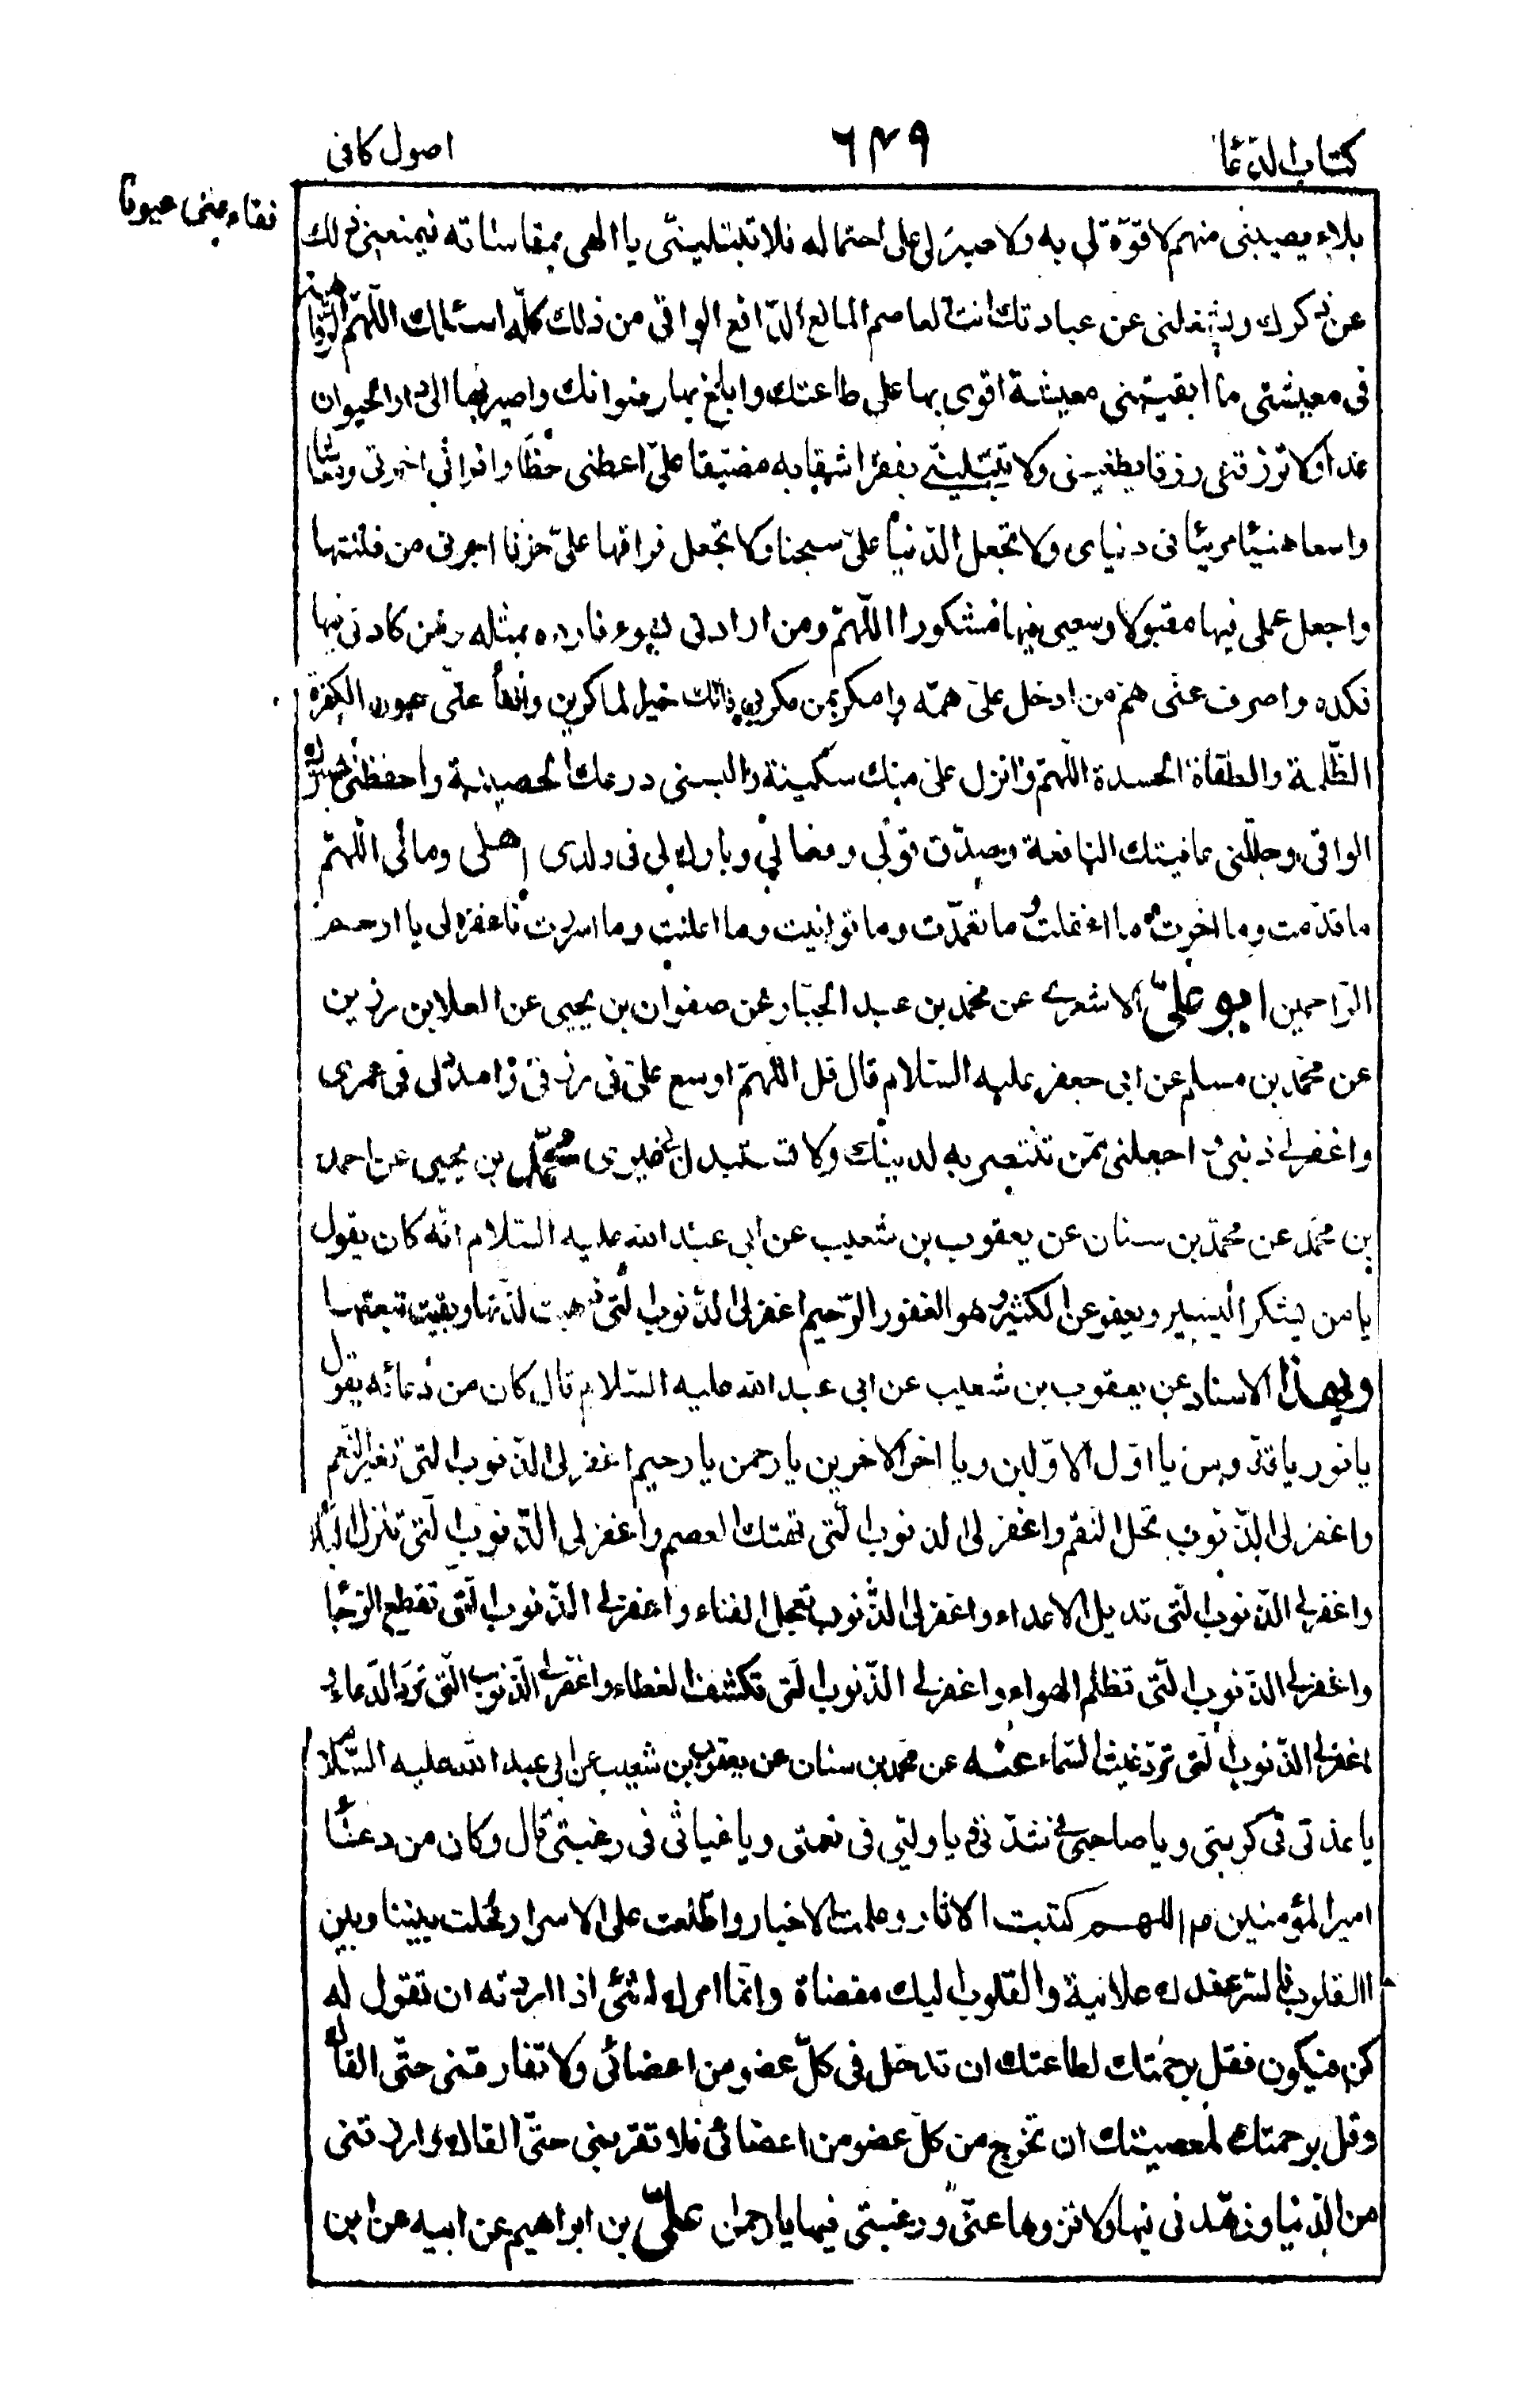 كتاب الدعا
٦٤٩
اصول كافى
نفاء عنى عيونا
بلاء يصيبنى منهم لا قوّة لى به ولا صبر لى على احتماله فلا تبتلينّى يا الهى بمقاساته فيمنعنى ذلك
عن ذكرك ويشغلنى عن عبادتك انت العاصم المانع الدّافع الواقى من ذلك كلّه اسئلك اللّهمّ الرّفاهية
فى معيشتى ما ابقيتنى معيشة اقوى بها على طاعتك وابلغ بها رضوانك واصير بها الى دار الحيوان
غدا ولا ترزقنى رزقا يطغينى ولا تبتلينّى بفقر اشقى به مضيّقا علىّ اعطنى حظّا وافرا فى اخرتى ومعاشا
واسعا هنيئا مريئا فى دنياى ولا تجعل الدّنيا علىّ سجنا ولا تجعل فراقها علىّ حزنا اجرنى من فتنتها
واجعل عملى فيها مقبولا وسعيى فيها مشكورا اللّهمّ ومن ارادنى بسوء فارده بمثله ومن كادنى فيها
فكده واصرف عنّى همّ من ادخل علىّ همّه وامكر بمن مكر بى فانّك خير الماكرين وافقأ عنّى عيون الكفرة
الظّلمة والطغاة الحسدة اللّهمّ وانزل علىّ منك سكينة والبسنى درعك الحصينة واحفظنى بسترك
الواقى وجلّلنى عافيتك النافعة وصدّق قولى وفعالى وبارك لى فى ولدى واهلى ومالى اللّهمّ
ما قدّمت وما اخّرت وما اغفلت وما تعمّدت وما توانيت وما اعلنت وما اسررت فاغفره لى يا ارحم
الرّاحمين ابو علىّ الاشعرى عن محمّد بن عبد الجبّار عن صفوان بن يحيى عن العلا بن رزين
عن محمّد بن مسلم عن ابى جعفر عليه السّلام قال قل اللّهمّ اوسع علىّ فى رزقى وامدد لى فى عمرى
واغفر لى ذنبى واجعلنى ممّن تنتصر به لدينك ولا تستبدل بى غيرى محمّد بن يحيى عن احمد
بن محمّد عن محمّد بن سنان عن يعقوب بن شعيب عن ابى عبد الله عليه السّلام انّه كان يقول
يا من يشكر اليسير ويعفو عن الكثير وهو الغفور الرّحيم اغفر لى الذّنوب الّتى ذهبت لذّتها وبقيت تبعتها
وبهذا الاسناد عن يعقوب بن شعيب عن ابى عبد الله عليه السّلام قال كان من دعائه يقول
يا نور يا قدّوس يا اوّل الاوّلين ويا اخر الاخرين يا رحمن يا رحيم اغفر لى الذّنوب الّتى تغيّر النّعم
واغفر لى الذّنوب تحلّ النقم واغفر لى الذنوب الّتى تهتك العصم واغفر لى الذّنوب الّتى تنزل البلاء
واغفر لى الذّنوب الّتى تديل الاعداء واغفر لى الذّنوب تعجل الفناء واغفر لى الذّنوب الّتى تقطع الرّجا
واغفر لى الذّنوب الّتى تظلم الهواء واغفر لى الذّنوب الّتى تكشف الغطاء واغفر لى الذّنوب الّتى تردّ الدّعاء و
اغفر لى الذّنوب الّتى تردّ غيث السّماء عنه عن محمّد بن سنان عن يعقوب بن شعيب عن ابى عبد الله عليه السّلام
يا عدّتى فى كربتى ويا صاحبى فى شدّتى ويا وليّى فى نعمتى ويا غياثى فى رغبتى قال وكان من دعاء
امير المؤمنين ع اللهم كتبت الاثار وعلمت الاخبار واطّلعت على الاسرار فحلت بيننا وبين
القلوب فالسّر عندك علانية والقلوب اليك مفضاة وانّما امرك لشئ اذا اردته ان تقول له
كن فيكون فقل برحمتك لطاعتك ان تدخل فى كلّ عضو من اعضائى ولا تفارقنى حتّى القاك
وقل برحمتك لمعصيتك ان تخرج من كلّ عضو من اعضائى فلا تقربنى حتّى القاك وارزقنى
من الدّنيا وزهّدنى فيها ولا تزوها عنّى ورغبتى فيها يا رحمان علىّ بن ابراهيم عن ابيه عن ابن